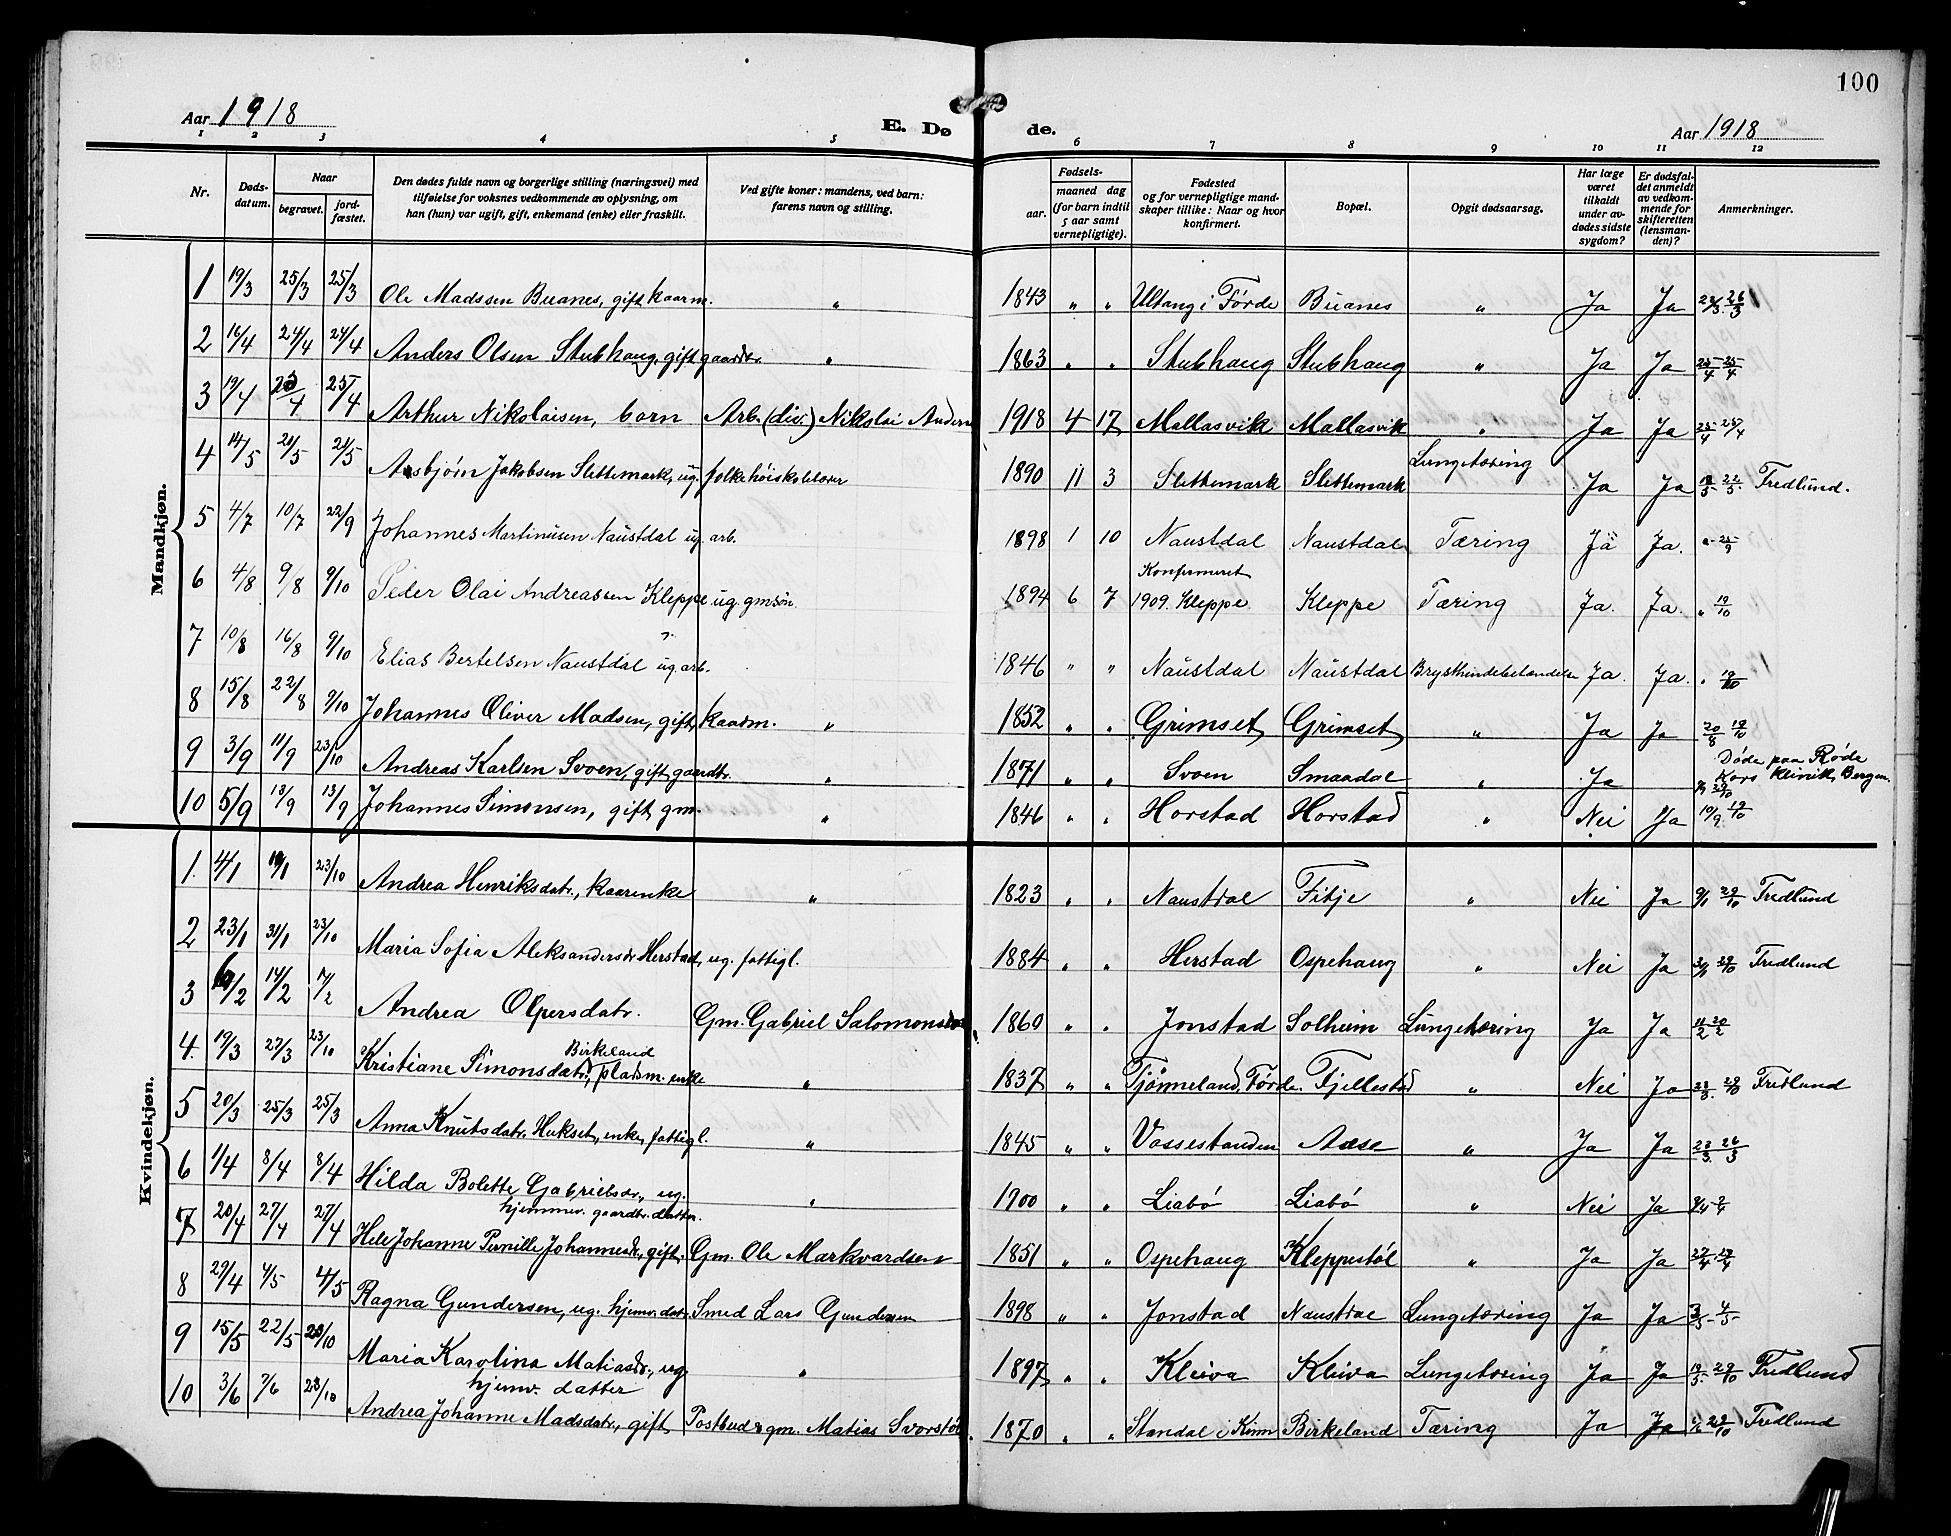 100
Aar 1918
E. Dø de.
Aar 1918
1 2 3 4 5 6 7 8 9 10 11 12
Nr.
Døds-datum.
Naar
begravet.
jord-fæstet.
Den dødes fulde navn og borgerlige stilling (næringsvei) med tilføielse for voksnes vedkommende av oplysning, om han (hun) var ugift, gift, enkemand (enke) eller fraskilt.
Ved gifte koner: mandens, ved barn: farens navn og stilling.
Fødsels-
aar.
maaned dag (for barn indtil 5 aar samt vernepligtige).
Fødested og for vernepligtige mandskaper tillike: Naar og hvor konfirmert.
Bopæl.
Opgit dødsaarsag.
Har læge været tilkaldt under avdødes sidste sygdom?
Er dødsfaldet anmeldt av vedkommende for skifteretten (lensmanden)?
Anmerkninger.
Mandkjøn.
1 19/3 25/3 25/3 Ole Madssen Buanes, gift kaarm. " 1843 " " Ultang i Førde Buanes " Ja Ja 22/3 26/3
2 16/4 24/4 24/4 Anders Olsen Stubhaug, gift gaardbr. " 1863 " " Stubhaug Stubhaug " Ja Ja 25/4 25/4
3 19/4 25/4 25/4 Arthur Nikolaisen, barn Arb. (div.) Nikolai Andersen 1918 4 17 Mallasvik Mallasvik " Ja Ja 25/4 25/4
4 14/5 21/5 21/5 Asbjørn Jakobsen Slettemark, ug. folkehøiskolelærer 1890 11 3 Slettemark Slettemark Lungetæring Ja Ja 18/5 22/5 Fredlund.
5 4/7 10/7 22/9 Johannes Martinusen Naustdal ug. arb. 1898 1 10 Naustdal Naustdal Tæring Ja Ja. " 25/9
6 4/8 9/8 9/10 Peder Olai Andreassen Kleppe ug. gmsøn. 1894 6 7 Konfirmeret 1909. Kleppe Kleppe Tæring Ja. Ja. " 19/10
7 10/8 16/8 9/10 Elias Bertelsen Naustdal ug. arb. 1846 " " Naustdal Naustdal Brysthindebetændelse Ja. Ja. " 19/10
8 15/8 22/8 9/10 Johannes Oliver Madsen, gift, kaarm. " 1852 " " Grimset Grimset " Ja Ja 20/8 19/10
9 3/9 11/9 23/10 Andreas Karlsen Svoen, gift, gaardbr. " 1871 " " Svoen Smaadal " Ja Døde paa Røde Kors Klinik, Bergen. 29/10
10 5/9 13/9 13/9 Johannes Simonsen, gift, gm. " 1846 " " Horstad Horstad " Nei Ja 10/9 19/10
Kvindekjøn.
1. 4/1 10/1 23/10 Andrea Henriksdatr., kaarenke " 1823 " " Naustdal Fitje " Nei Ja 9/1 29/10 Fredlund
2 23/1 31/1 23/10 Maria Sofia Aleksandersdr Herstad, ug. fattigl. 1884 " " Herstad Ospehaug " Nei Ja 31/1 29/10 Fredlund
3 6/2 14/2 /2 Andrea Olpersdatr. Gm. Gabriel Salomonsen 1860 " " Jonstad Solheim Lungetæring Ja Ja 11/2 20/2
4. 19/3 27/3 23/10 Kristiane Simonsdatr., Birkeland pladsm. enke " 1837 " " Tjønneland, Førde Fjellestad " Nei Ja 23/3. 29/10 Fredlund
5 20/3 25/3 25/3 Anna Knutsdatr. Hukset, enke, fattigl. " 1845 " " Vossestanden Aase " Ja Ja 23/3. 26/3
6 1/4 8/4 8/4 Hilda Bolette Gabrielsdr., ug. hjemmev. gaardbr. datter. " 1900 " " Liabø Liabø " Nei Ja
7 20/4 27/4 27/4 Hele Johanne Pernille Johannesdr., gift, Gm. Ole Markvardsen 1851 " " Ospehaug Kleppestøl " Ja Ja 27/4 27/4
8 29/4 4/5 4/5 Ragna Gundersen, ug. hjemv. datr. Smed Lars Gundersen 1898 " " Jonstad Naustdal Lungetæring Ja Ja 3/5 4/5
9 15/5 22/5 23/10 Maria Karolina Matiasdr., ug hjemv. datter " 1897 " " Kleiva Kleiva Lungetæring Ja Ja 19/5. 29/10 Fredlund
10 3/6 7/6 23/10 Andrea Johanne Madsdatr., gift, Postbud & gm. Matias Svorstøl. 1870 " " Standal i Kinn Birkeland Tæring Ja Ja 29/10 Fredlund